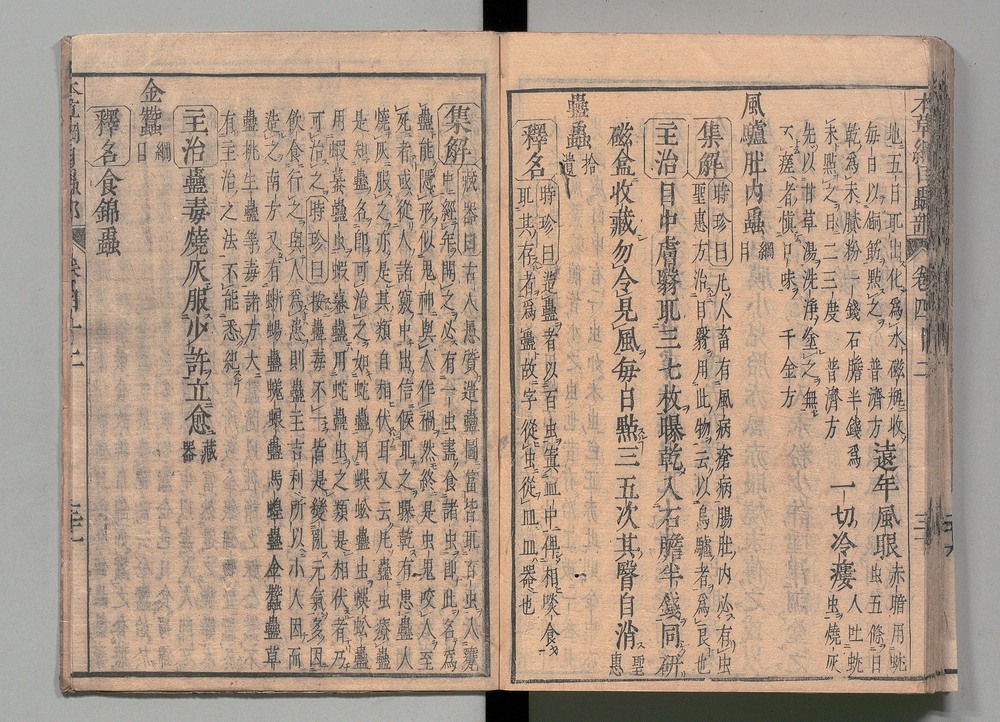 本草綱目蟲部 卷四十二
地五日取出化爲水磁瓶收
每日以銅筯點之 普濟方 遠年風眼 赤暗用蚘虫五條日
乾爲末膩粉一錢石膽半錢爲
末點之日二三度 普濟方 一切冷瘻 人吐蚘虫燒灰
先以甘草湯洗淨塗之無
不瘥者愼口味 千金方
風驢肚内蟲 綱目
集解 時珍曰凡人畜有風病瘡病腸肚内必有虫
聖惠方治目翳用此物云以烏驢者爲良也
主治 目中膚翳取三七枚曝乾入石膽半錢同研
磁盒收藏勿令見風每日點三五次其翳自消 聖惠
蠱蟲 拾遺
釋名 時珍曰造蠱者以百虫寘皿中俾相啖食
取其存者爲蠱故字從虫從皿皿器也
集解 藏器曰古人愚質造蠱圖富皆取百虫入甕
中經年開之必有一虫盡食諸虫即此名爲
蠱能隱形似鬼神與人作禍然終是虫鬼咬人至
死者或從人諸竅中出信候取之曝乾有患蠱人
燒灰服之亦是其類自相伏耳又云凡蠱虫療蠱
是知蠱名即可治之如蛇蠱用蜈蚣蠱虫蜈蚣蠱
用蝦蟇蠱虫蝦蟇蠱用蛇蠱虫之類是相伏者乃
可治之時珍曰按蠱毒不一皆是變亂元氣多因
飲食行之與人爲患則蠱主吉利所以小人因而
造之南方又有蜥蜴蠱蜣蜋蠱馬蝗蠱金蠶蠱草
蠱挑生蠱等毒諸方大
有主治之法不能悉紀
主治 蠱毒燒灰服少許立愈 藏器
金蠶 綱目
釋名 食錦蟲